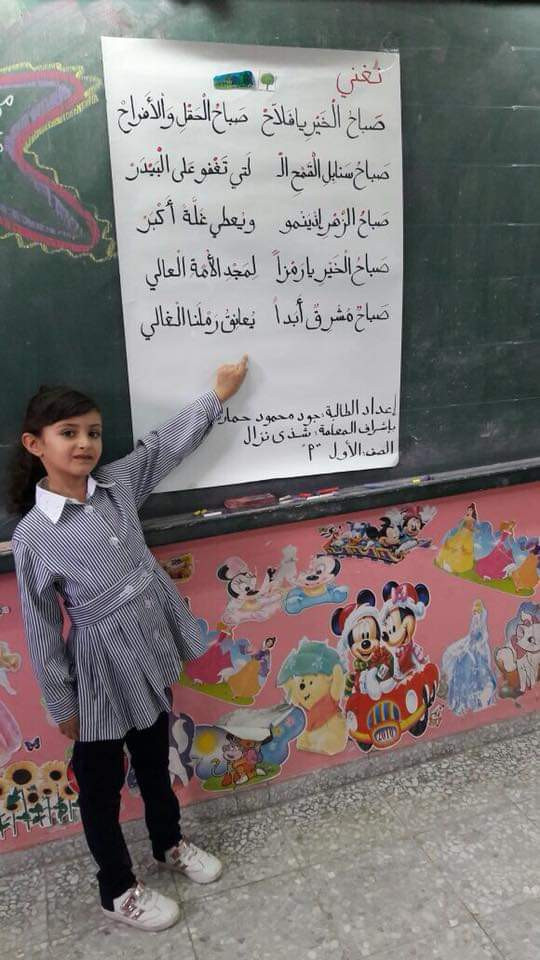 نُغني
صَباحُ الْخَيْرِ يا فَلاّحْ صَباحُ الْحَقْلِ وَالأَفراحْ
صَباحُ سَنابِلِ الْقَمْحِ الْـ لَتي تَغْفو عَلى الْبَيْدَرْ
صَباحُ الزَّهْرِ إذ يَنمو ويُعطي غَلَّةً أَكْبَرْ
صَباحُ الْخَيْرِ يا رَمْزاً لِمَجْدِ الأُمَّةِ الْعالي
صَباحٌ مُشْرِقٌ أَبداً يُعانِقُ رَمْلَنا الْغالي
إعداد الطالبة: جود محمود
بإشراف المعلمة: شذى نزال
الصف: الأول "م"
2010